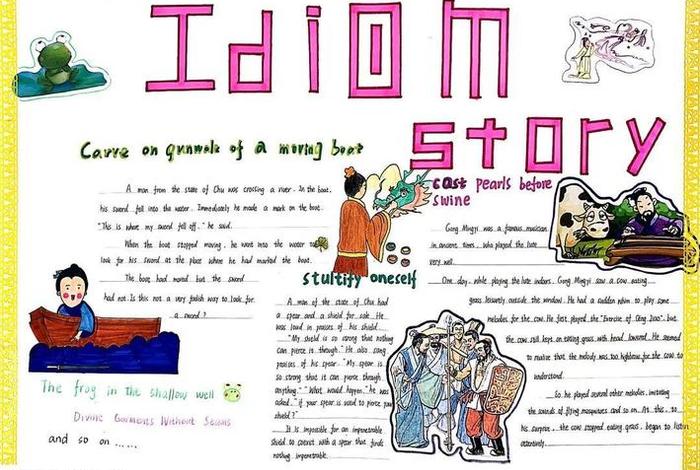 Idiom
story
Carve on gunwale of a moving boat
A man from the state of Chu was crossing a river. In the boat,
his sword fell into the water. Immediately he made a mark on the boat.
"This is where my sword fell off." he said.
When the boat stopped moving, he went into the water to
look for his sword at the place where he had marked the boat.
The boat had moved but the sword
had not. Is this not a very foolish way to look for
a sword?
The frog in the shallow well
Divine Garments Without Seams
and so on ......
stultify oneself
A man of the state of Chu had
a spear and a shield for sale. He
was loud in praises of his shield.
"My shield is so strong that nothing
can pierce it through." He also sang
praises of his spear. "My spear is
so strong that it can pierce through
anything." "What would happen," he was
asked, "if your spear is used to pierce your
shield?"
It is impossible for an impenetrable
shield to coexist with a spear that finds
nothing impenetrable.
cast pearls before
swine
Gong Mingyi was a famous musician
in ancient times, who played the lute
very well.
One day, while playing the lute indoors, Gong Mingyi saw a cow eating
grass leisurely outside the window. He had a sudden whim to play some
melodies for the cow. He first played the "Exercise of Qing Jiao", but
the cow still kept on eating grass with head lowered. He seemed
to realize that the melody was too highbrow for the cow to
understand.
So he played several other melodies, imitating
the sounds of flying mosquitoes and so on. At this, to
his surprise, the cow stopped eating grass, began to listen
attentively.